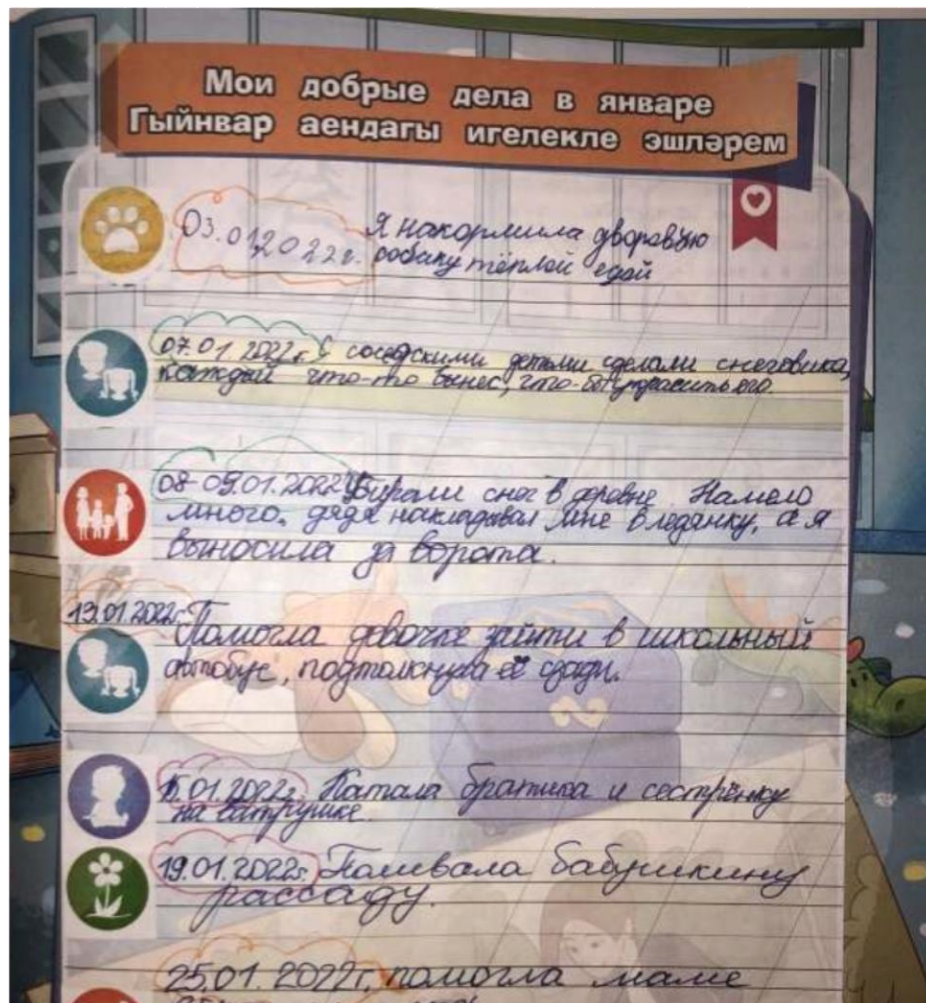 Мои добрые дела в январе
Гыйнвар аендагы игелекле эшләрем
03.01.2022г. Я накормила дворовую
собаку тёплой едой
07.01.2022г. С соседскими детьми сделали снеговика,
каждый что-то вынес, что-бы украсить его.
08-09.01.2022г Убирали снег в деревне. Намело
много. дядя накладывал мне в ледянку, а я
выносила за ворота.
13.01.2022г. Помогла девочке зайти в школьный
автобус, подтолкнула её сзади.
15.01.2022г. Катала братика и сестрёнку
на ватрушке.
19.01.2022г. Поливала бабушкину
рассаду.
25.01.2022г. помогла маме